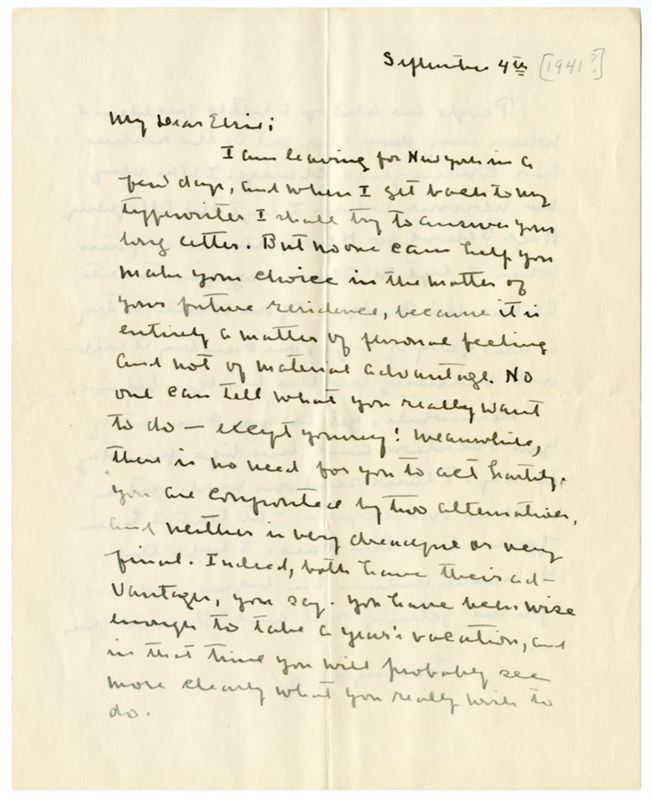 September 4th [1941?]
My Dear Elsie;
I am leaving for New York in a
few days, and when I get back to my
typewriter I shall try to answer your
long letter. But no one can help you
make your choice in the matter of
your future residence, because it is
entirely a matter of personal feeling
and not of material advantage. No
one can tell what you really want
to do — except yourself! Meanwhile,
there is no need for you to act hastily.
you are confronted by two alternatives,
and neither is very dreadful or very
final. Indeed, both have their ad-
vantages, you say. you have been wise
enough to take a year's vacation, and
in that time you will probably see
more clearly what you really wish to
do.